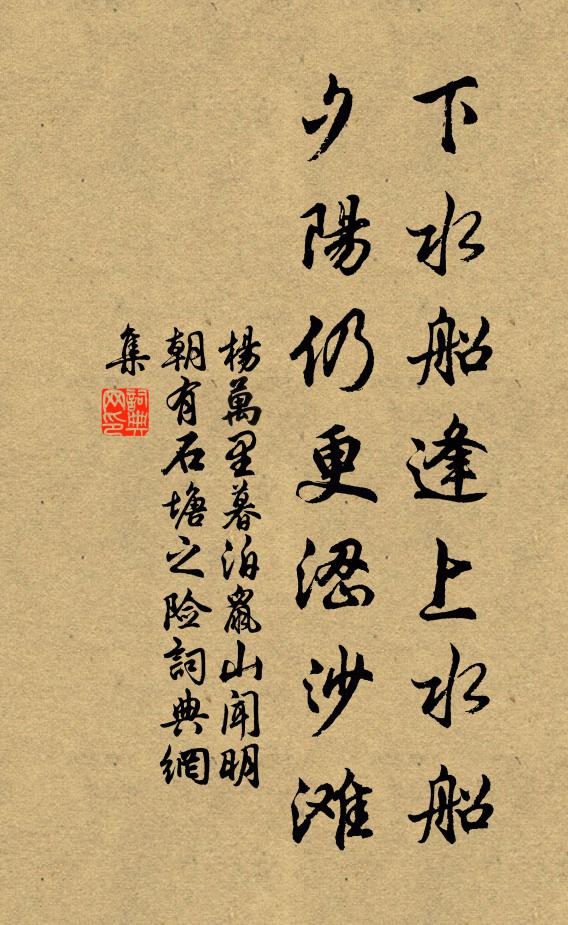 下水船逢上水船
夕陽仍更涩沙滩
楊萬里暮泊鼠山聞明
朝有石塘之险詞典網
集
詞典
网印